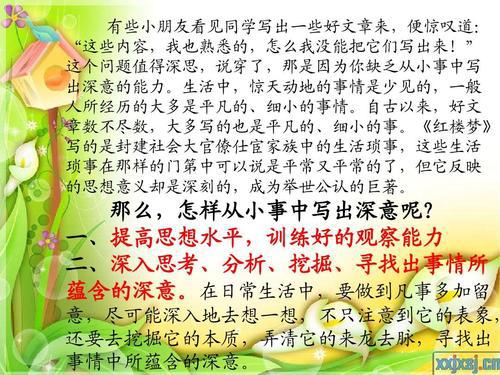 有些小朋友看见同学写出一些好文章来，便惊叹道：
“这些内容，我也熟悉的，怎么我没能把它们写出来！”
这个问题值得深思，说穿了，那是因为你缺乏从小事中写
出深意的能力。生活中，惊天动地的事情是少见的，一般
人所经历的大多是平凡的、细小的事情。自古以来，好文
章数不尽数，大多写的也是平凡的、细小的事。《红楼梦》
写的是封建社会大官僚仕宦家族中的生活琐事，这些生活
琐事在那样的门第中可以说是平常又平常的了，但它反映
的思想意义却是深刻的，成为举世公认的巨著。
那么，怎样从小事中写出深意呢？
一、提高思想水平，训练好的观察能力
二、深入思考、分析、挖掘、寻找出事情所
蕴含的深意。在日常生活中，要做到凡事多加留
意，尽可能深入地去想一想，不只注意到它的表象，
还要去挖掘它的本质，弄清它的来龙去脉，寻找出
事情中所蕴含的深意。
xxjxsj.cn